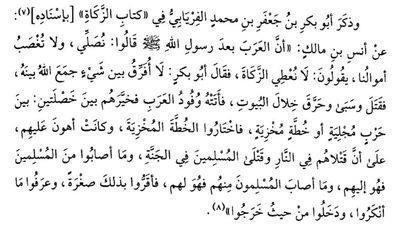 وذكَرَ أبو بكرِ بنُ جَعْفَرِ بنِ محمدٍ الفِرْيَابِيُّ في «كتابِ الزَّكَاةِ» [بإسْنَادِهِ](٧):
عنْ أنسِ بنِ مالكٍ: «أنَّ العَرَبَ بعدَ رسولِ اللهِ ﷺ قَالُوا: نُصَلِّي، ولا نُغْصَبُ
أموالُنا، يقُولُونَ: لَا نُعْطِي الزَّكَاةَ، فقَالَ أبو بكرٍ: لَا أُفَرِّقُ بينَ شَيْءٍ جمَعَ اللهُ بينَهُ،
فقَتَلَ وسَبَى وحَرَّقَ خِلالَ البُيوتِ، فأَتَتْهُ وفُودُ العَرَبِ فخَيَّرَهُم بينَ خَصْلَتَينِ: بينَ
حَرْبٍ مُجْلِيَةٍ أو خُطَّةٍ مُخْزِيَةٍ، فاخْتَارُوا الخُطَّةَ المُخْزِيَةَ، وكانَتْ أهونَ عَلَيهِم،
علَىٰ أنَّ قَتْلاهُم في النَّارِ وقَتْلَىٰ المُسْلِمينَ في الجَنَّةِ، ومَا أصابُوا مِنَ المُسْلِمينَ
فهُو إليهِم، ومَا أصَابَ المُسْلِمُونَ مِنهُم فهُو لهم، فأقَرُّوا بذلكَ صغْرَةً، وعرَفُوا مَا
أنْكَرُوا، ودَخَلُوا منْ حيثُ خَرَجُوا»(٨).